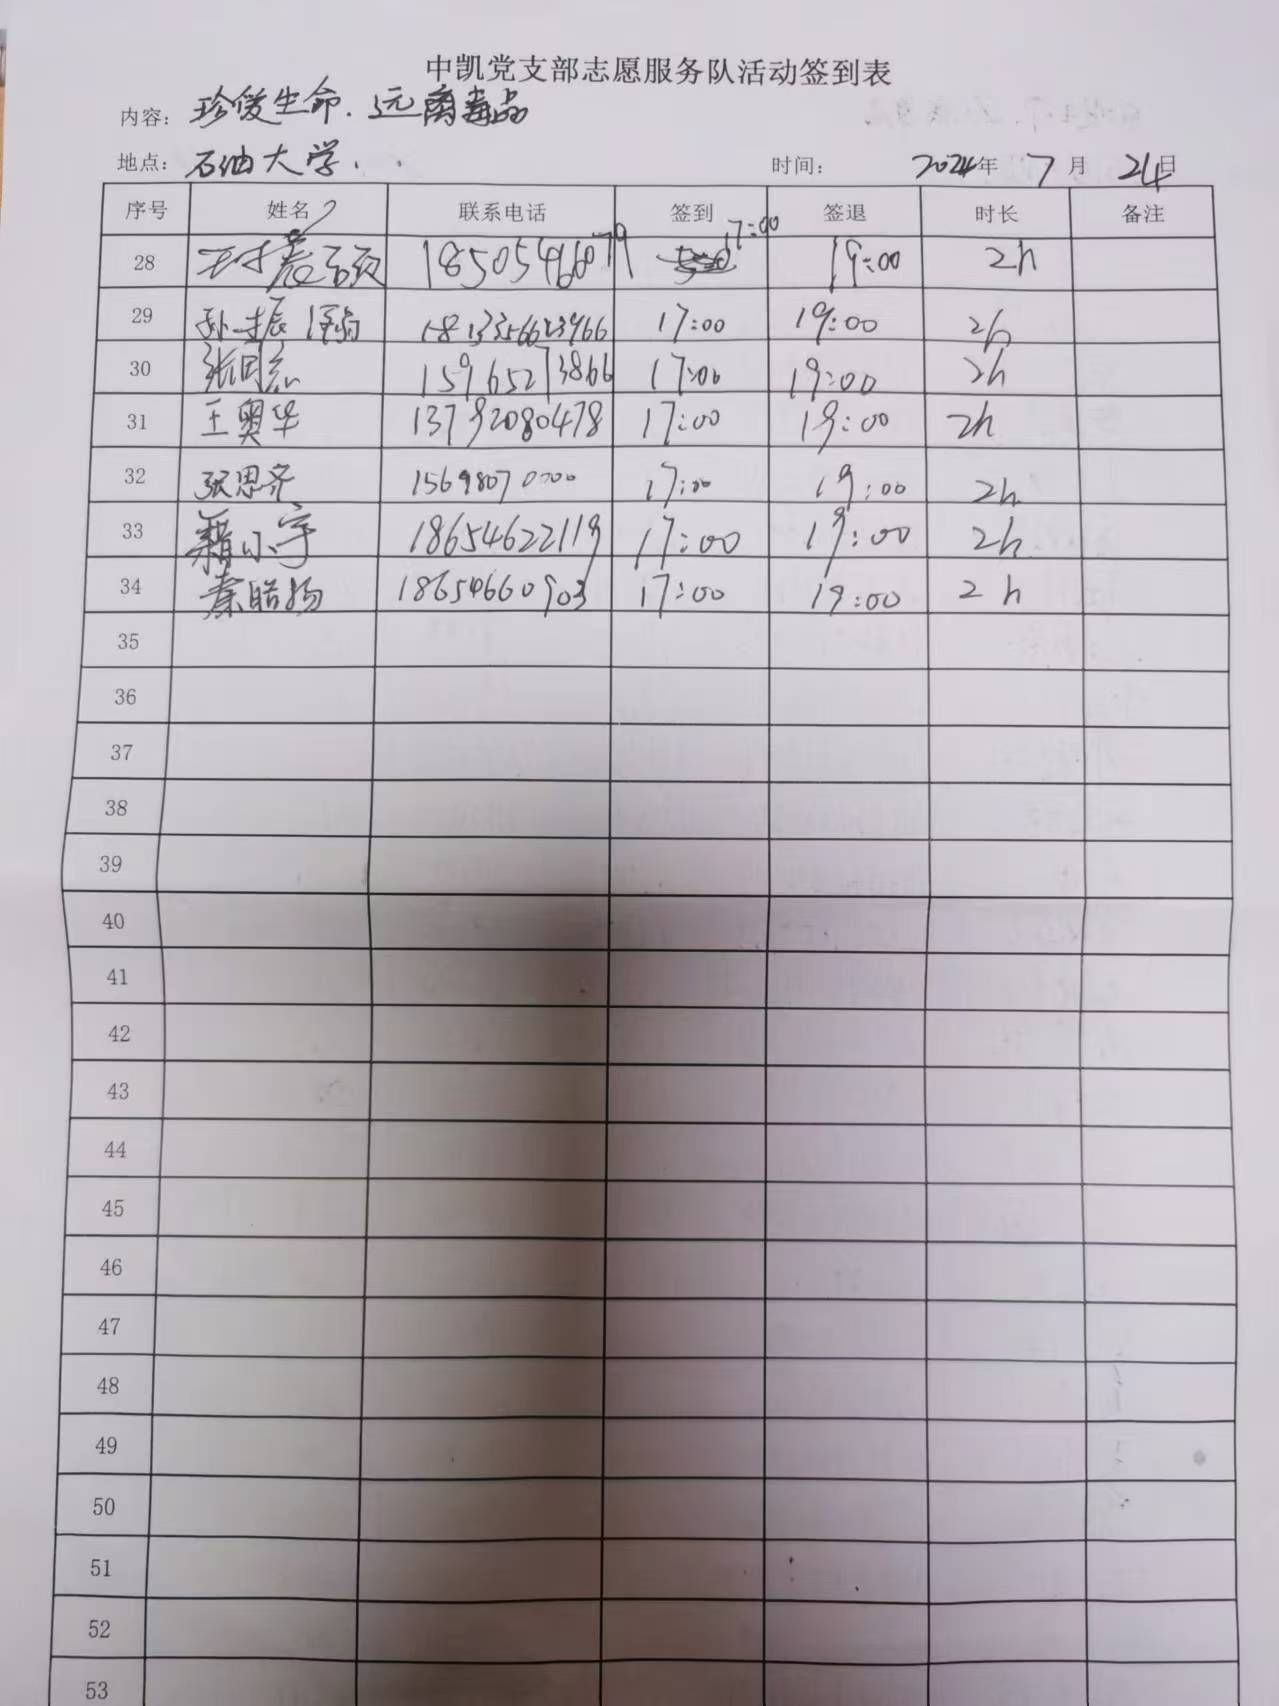 中凯党支部志愿服务队活动签到表
内容: 珍爱生命.远离毒品
地点: 石油大学..
时间: 2024年 7月 24日
序号 姓名 联系电话 签到 签退 时长 备注
28 18505466079 17:00 19:00 2h
29 17:00 19:00 2h
30 15965273866 17:00 19:00 2h
31 王奥华 13792080478 17:00 19:00 2h
32 张思齐 15698070000 17:00 19:00 2h
33 小宇 18654622119 17:00 19:00 2h
34 秦皓扬 18654660903 17:00 19:00 2h
35
36
37
38
39
40
41
42
43
44
45
46
47
48
49
50
51
52
53